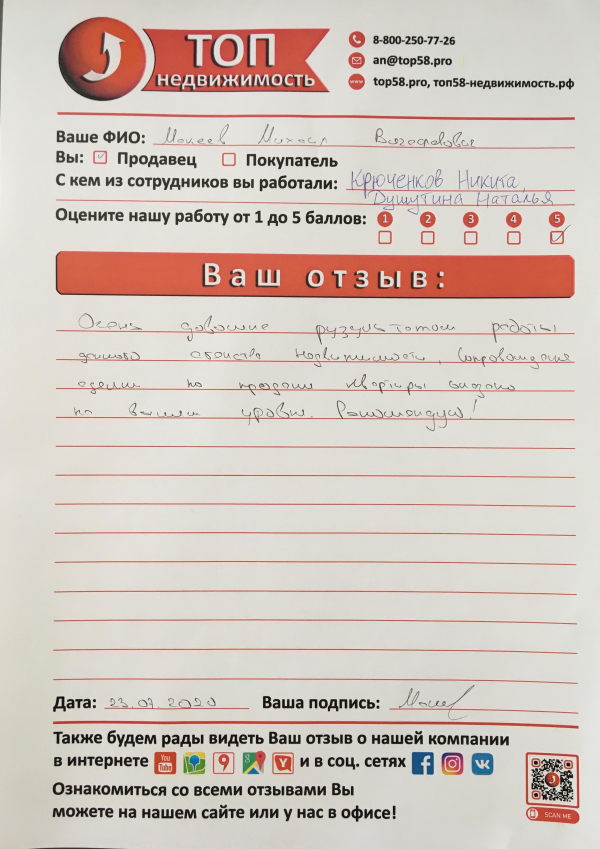 ТОП
недвижимость
8-800-250-77-26
an@top58.pro
www
top58.pro, топ58-недвижимость.рф
Ваше ФИО: Макеев Михаил
Вы: Продавец Покупатель
С кем из сотрудников вы работали: Крюченков Никита,
Душутина Наталья
Оцените нашу работу от 1 до 5 баллов: 1 2 3 4 5
Ваш отзыв:
Очень довольные результатом работы
данного агентства недвижимости, сопровождение
сделки по продаже квартиры оказано
на высшем уровне. Рекомендую!
Дата: 23.07.2020 Ваша подпись:
Также будем рады видеть Ваш отзыв о нашей компании
в интернете You Tube 9 8 Y и в соц. сетях f
Ознакомиться со всеми отзывами Вы
можете на нашем сайте или у нас в офисе!
SCAN ME